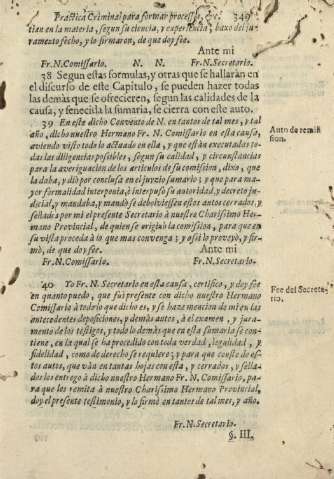 Practica Criminal para formar processos, &c. 349
tian en la materia, segun su ciencia, y experiencia, baxo del ju-
ramento fecho, y lo firmaron, de que doy fee.
Ante mi
Fr. N. Comissario. N. N. Fr. N. Secretario.
38 Segun estas formulas, y otras que se hallaràn en
el discurso de este Capitulo, se pueden hazer todas
las demàs que se ofrecieren, segun las calidades de la
causa, y fenecida la sumaria, se cierra con este auto.
39 En este dicho Convento de N. en tantos de tal mes, y tal
año, dicho nuestro Hermano Fr. N. Comissario en esta causa,
aviendo visto todo lo actuado en ella, y que estàn executadas to-
das las diligencias possibles, segun su calidad, y circunstancias
para la averiguacion de los articulos de su comission, dixo, que
la daba, y diò por conclusa en el juyzio sumario; y que para ma-
yor formalidad interponia, è interpuso su autoridad, y decreto ju-
dicial, y mandaba, y mandò se debolviessen estos autos cerrados, y
sellados por mi el presente Secretario à nuestro Charissimo Her-
mano Provincial, de quien se originò la comission, para que en
su vista proceda à lo que mas convenga; y assi lo proveyò, y fir-
mò, de que doy fee. Ante mi
Fr. N. Comissario. Fr. N. Secretario.
Auto de remis-
sion.
40 Yo Fr. N. Secretario en esta causa, certifico, y doy fee
en quanto puedo, que fui presente con dicho nuestro Hermano
Comissario à todo lo que dicho es, y se haze mencion de mi en las
antecedentes deposiciones, y demàs autos, à el examen, y jura-
mento de los testigos, y todo lo demàs que en esta sumaria se con-
tiene, en la qual se ha procedido con toda verdad, legalidad, y
fidelidad, como de derecho se requiere; y para que conste de es-
tos autos, que vàn en tantas hojas con esta, y cerrados, y sella-
dos los entrego à dicho nuestro Hermano Fr. N. Comissario, pa-
ra que los remita à nuestro Charissimo Hermano Provincial,
doy el presente testimonio, y lo firmè en tantos de tal mes, y año.
Fee del Secreta-
rio.
Fr. N. Secretario.
§. III.